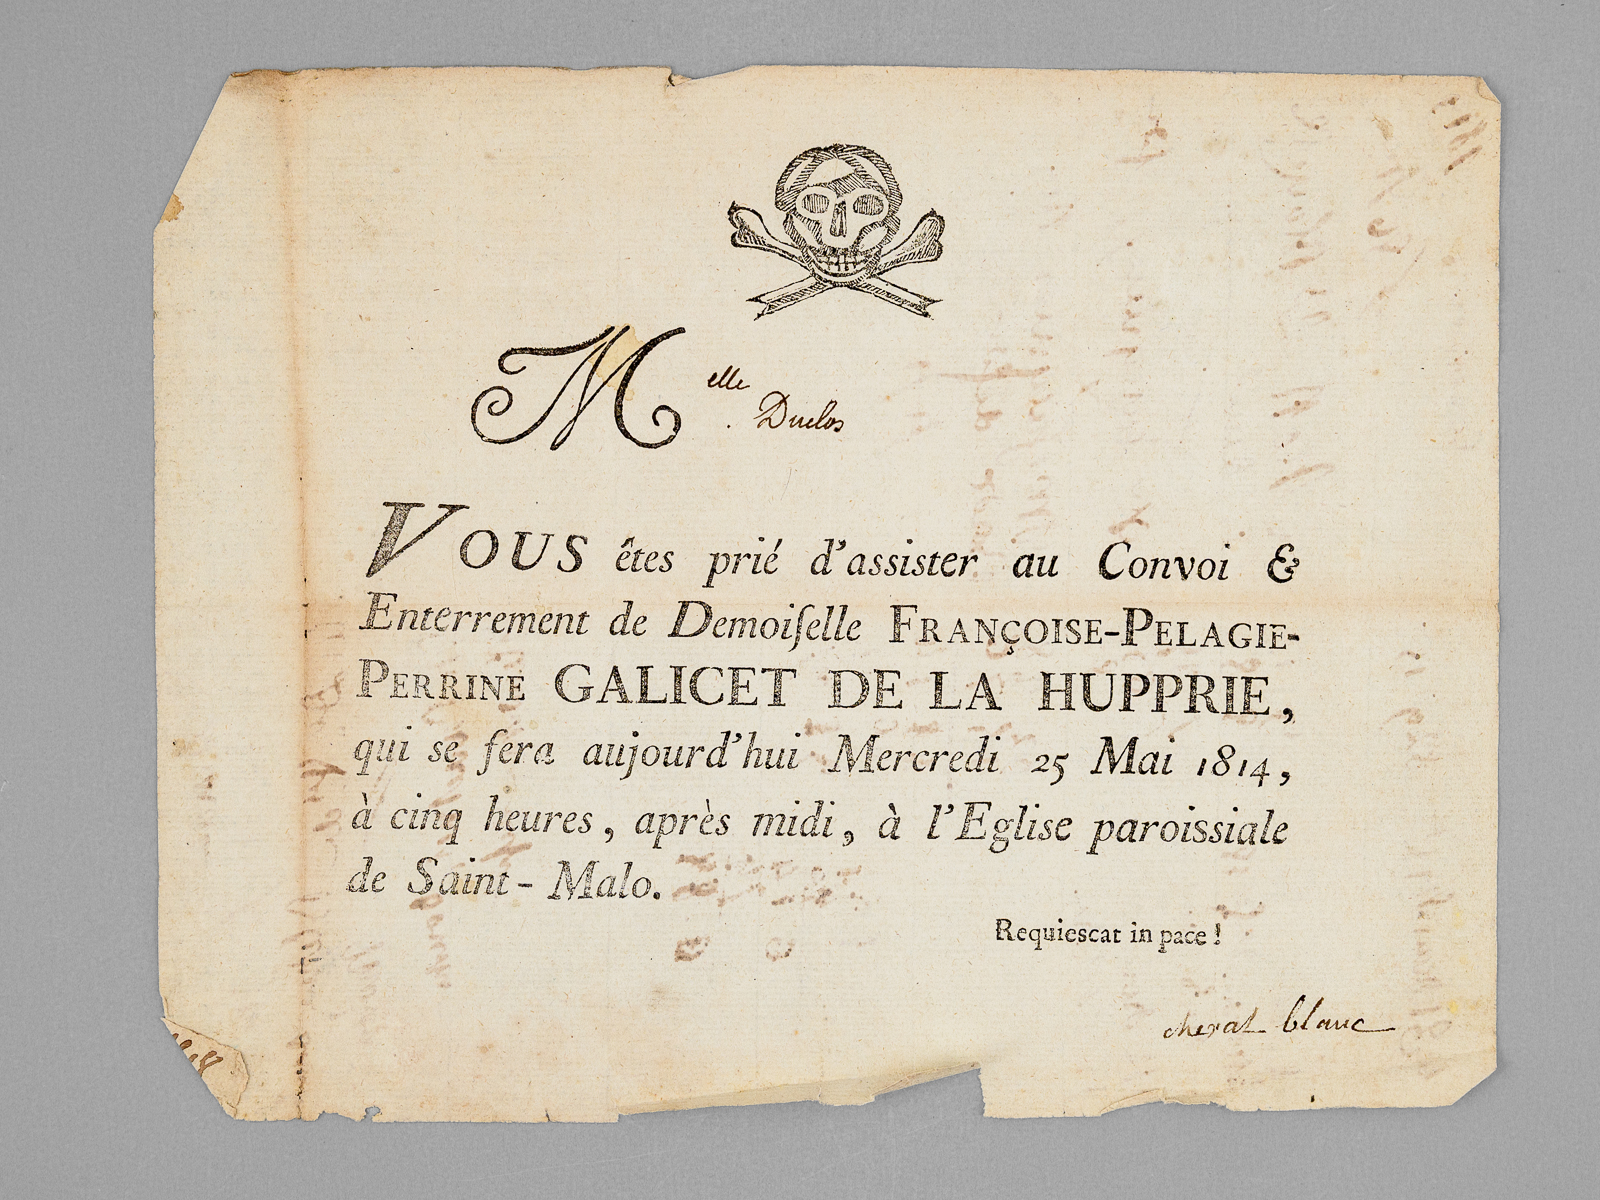 Melle Duclos
VOUS êtes prié d'assister au Convoi &
Enterrement de Demoiſelle FRANÇOISE-PELAGIE-
PERRINE GALICET DE LA HUPPRIE,
qui se fera aujourd'hui Mercredi 25 Mai 1814,
à cinq heures, après midi, à l'Eglise paroissiale
de Saint-Malo.
Requiescat in pace!
cheval blanc